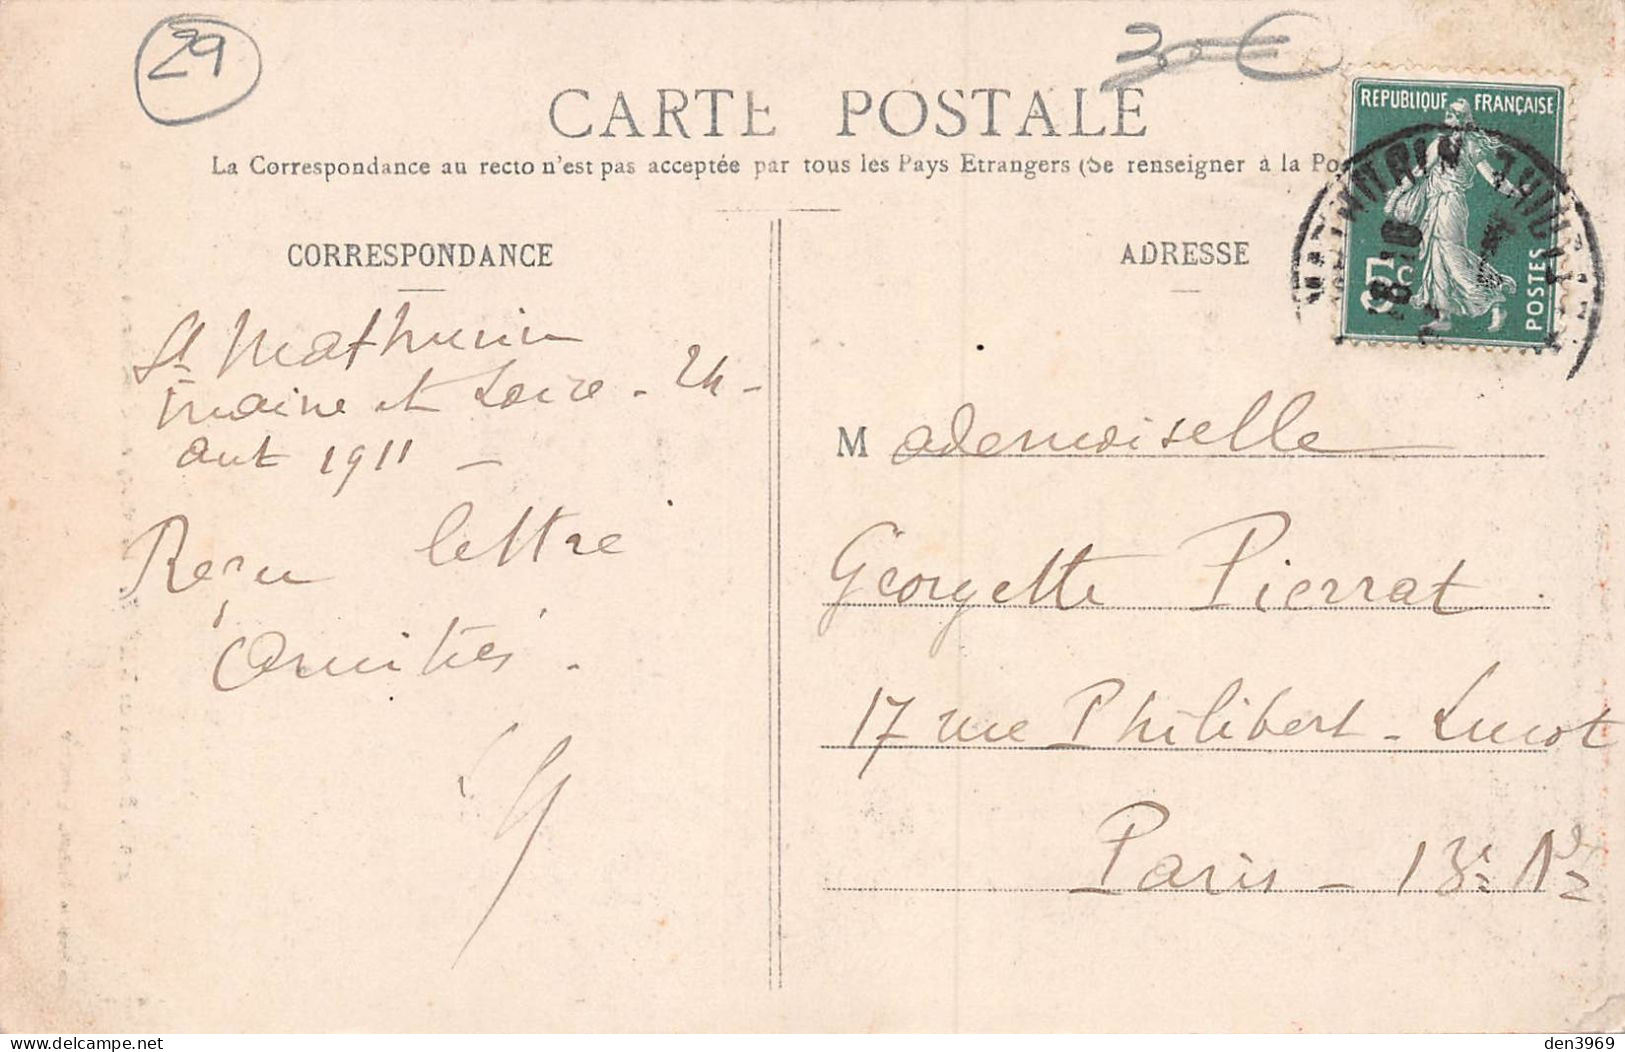 29
30€
CARTE POSTALE
La Correspondance au recto n'est pas acceptée par tous les Pays Etrangers (Se renseigner à la Po
REPUBLIQUE FRANÇAISE
POSTES
5 c
CORRESPONDANCE
St Mathurin
Maine et Loire - 24 -
Aout 1911 -
Reçu lettre
Amitiés.
ADRESSE
Mademoiselle
Georgette Pierrat.
17 rue Philibert-Lucot
Paris - 13e Ar
delcampe.net
den3969